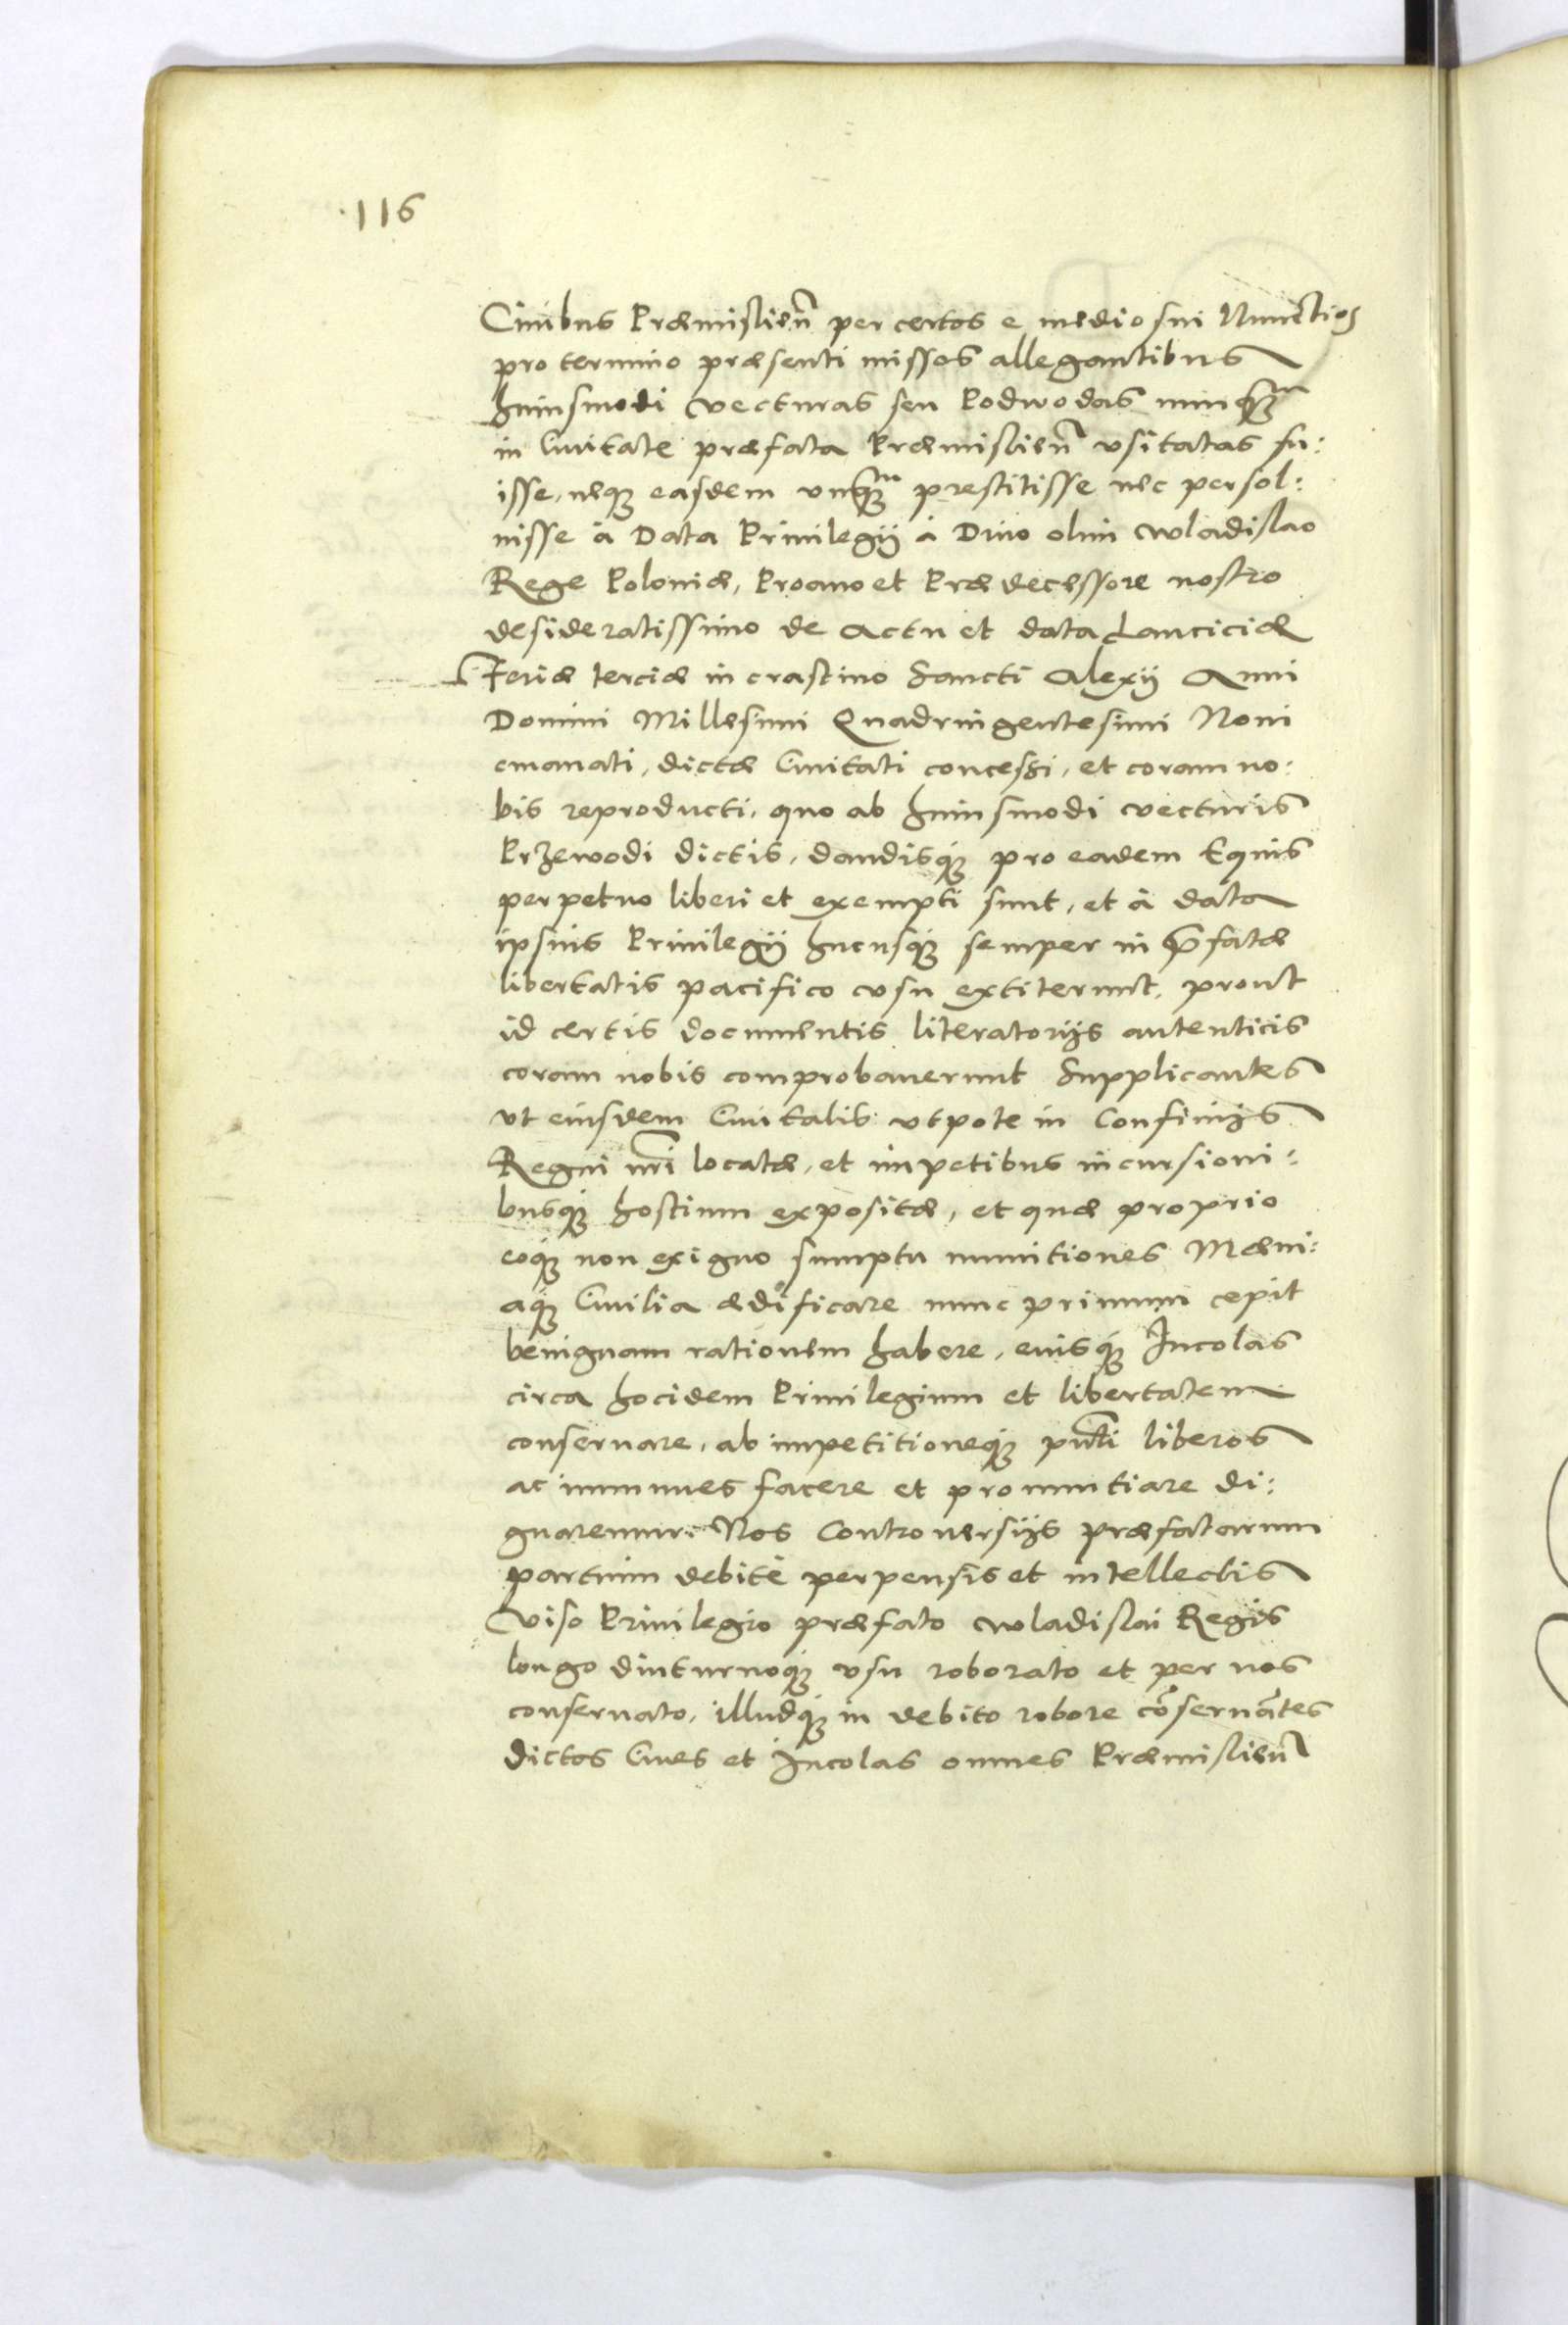 116
Ciuibus Præmislien̄ per certos e medio sui Nunctios
pro termino præsenti missos allegantibus
huiusmodi vecturas seu Podwodas nunq̃
in Ciuitate præfata Præmislien̄ vsitatas fu:
isse, neq; easdem vnq̃ prestitisse nec persol:
uisse à Data Priuilegij à Diuo olim Wladislao
Rege Poloniæ, Proauo et Prædecessore nostro
desideratissimo de Actu et data Lanciciæ
Feriæ terciæ in crastino Sancti Alexij Anni
Domini Millesimi Quadringentesimi Noni
emanati, dictæ Ciuitati concessi, et coram no:
bis reproducti, quo ab huiusmodi vecturis
Przewodi dictis, dandisq; pro eadem Equis
perpetuo liberi et exempti sunt, et à data
ipsius Priuilegij hucusq; semper in p̄fatæ
libertatis pacifico vsu extiterunt, prout
id certis documentis literatorijs autenticis
coram nobis comprobauerunt Supplicantes
vt eiusdem Ciuitatis vtpote in Confinijs
Regni nr̄i locatæ, et impetibus incursioni:
busq; hostium expositæ, et quæ proprio
eoq; non exiguo sumptu munitiones Mæni:
aq; Ciuilia ædificare nunc primum cepit
benignam rationem habere, euisq; Incolas
circa hocidem Priuilegium et libertatem
conseruare, ab impetitioneq; pn̄ti liberos
ac immunes facere et pronuntiare di:
gnaremur. Nos Controuersijs præfatarum
partium debitè perpensis et intellectis
Viso Priuilegio præfato Wladislai Regis
longo diuturnoq; vsu roborato et per nos
conseruato, illudq; in debito robore cōseruātes
dictos Ciues et Incolas omnes Præmislien̄